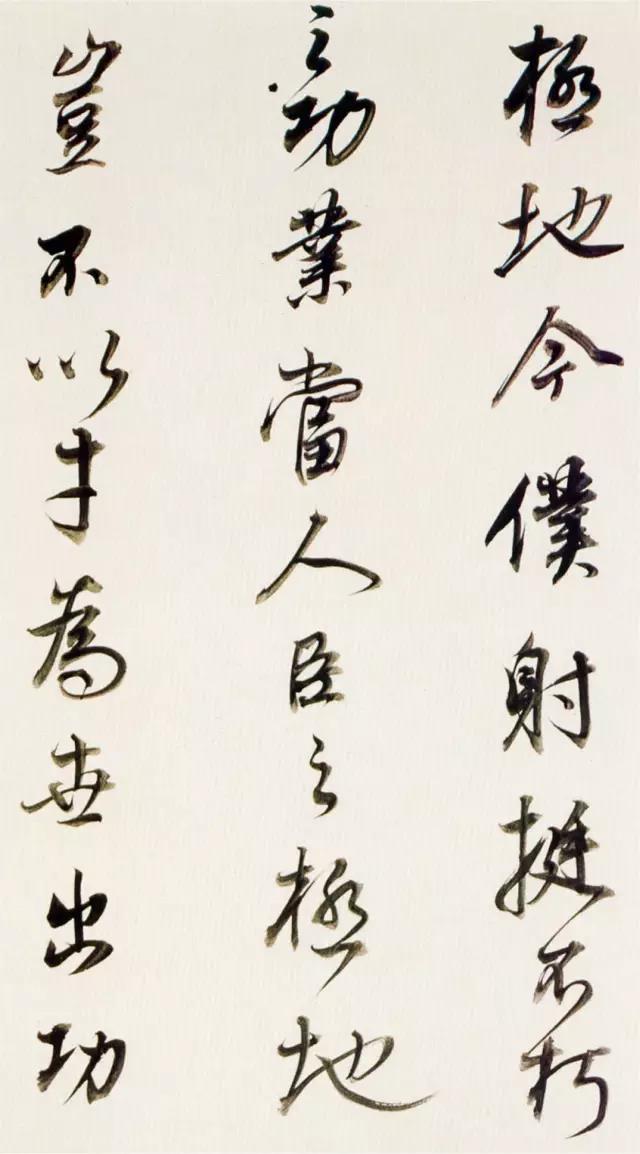 極地今僕射挺不朽
之功業當人臣之極地
豈不以才為世出功